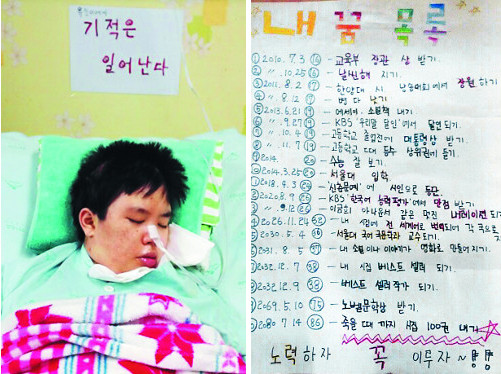 기적은
일어난다
내 꿈 목록
① 2010. 7. 3 ⑯ - 교육부 장관 상 받기.
② 〃. 10. 25 ⑯ - 날씬해 지기.
③ 2011. 8. 2 ⑰ - 한양대 시 낭송대회에서 장원 하기
④ 〃 8. 12 ⑰ - 병 다 낫기
⑤ 2013. 6. 21 ⑲ - 에세이, 소설책 내기
⑥ 〃. 9. 27 ⑲ - KBS '우리말 달인'에서 달인되기.
⑦ 〃. 10. 4 ⑲ - 고등학교 졸업전에 대통령상 받기
⑧ 〃 11. 7 ⑲ - 고등학교 전체 등수 상위권에 들기.
⑨ 2014. 20 - 수능 잘 보기.
2014. 3. 25 20 - 서울대 입학
2018. 9. 3 - 신춘문예'에 시인으로 등단.
2020. 8. 9 26 - KBS '한국어 능력평가'에서 만점 받기
〃. 9. 12 26 - 이금희 아나운서 같은 멋진 내레이션 되기
2026. 11. 24 32 - 내 시집이 전 세계로 번역되어 각 국으로
2030. 5. 4 36 - 서울대 국어 국문학과 교수되기.
2031. 8. 5 - 내 소설이나 이야기가 영화로 만들어지기.
2032. 12. 7 38 - 내 시집 베스트 셀러 되기.
2032. 12. 9 38 - 베스트 셀러 작가 되기.
2069. 5. 10 75 - 노벨문학상 받기.
2080. 7. 14 86 - 죽을 때 까지 시집 100권 내기
노력하자 꼭 이루자~